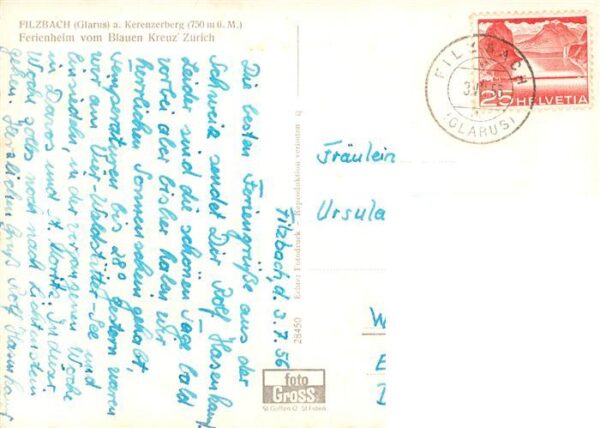 FILZBACH (Glarus) a. Kerenzerberg (750 m ü. M.)
Ferienheim vom Blauen Kreuz Zürich
Filzbach d. 3.7.56
Die besten Feriengrüße aus der
Schweiz sendet Dir Rolf Hasenkampf
Leider sind die schönen Tage bald
vorbei aber bisher haben wir
herrlichen Sonnenschein gehabt,
Temperaturen bis 28° gestern waren
wir am Vier-Waldstätter-See und
Einsiedeln, in der vergangenen Woche
in Davos und St. Moritz. In dieser
Woche solls noch nach Lichtenstein
gehen. Herzlichen Gruß Rolf Hasenkampf
28450 Echter Fotodruck - Reproduktion verboten
foto
GROSS
St. Gallen
FILZBACH
(GLARUS)
25 HELVETIA
Fräulein
Ursula
W
E